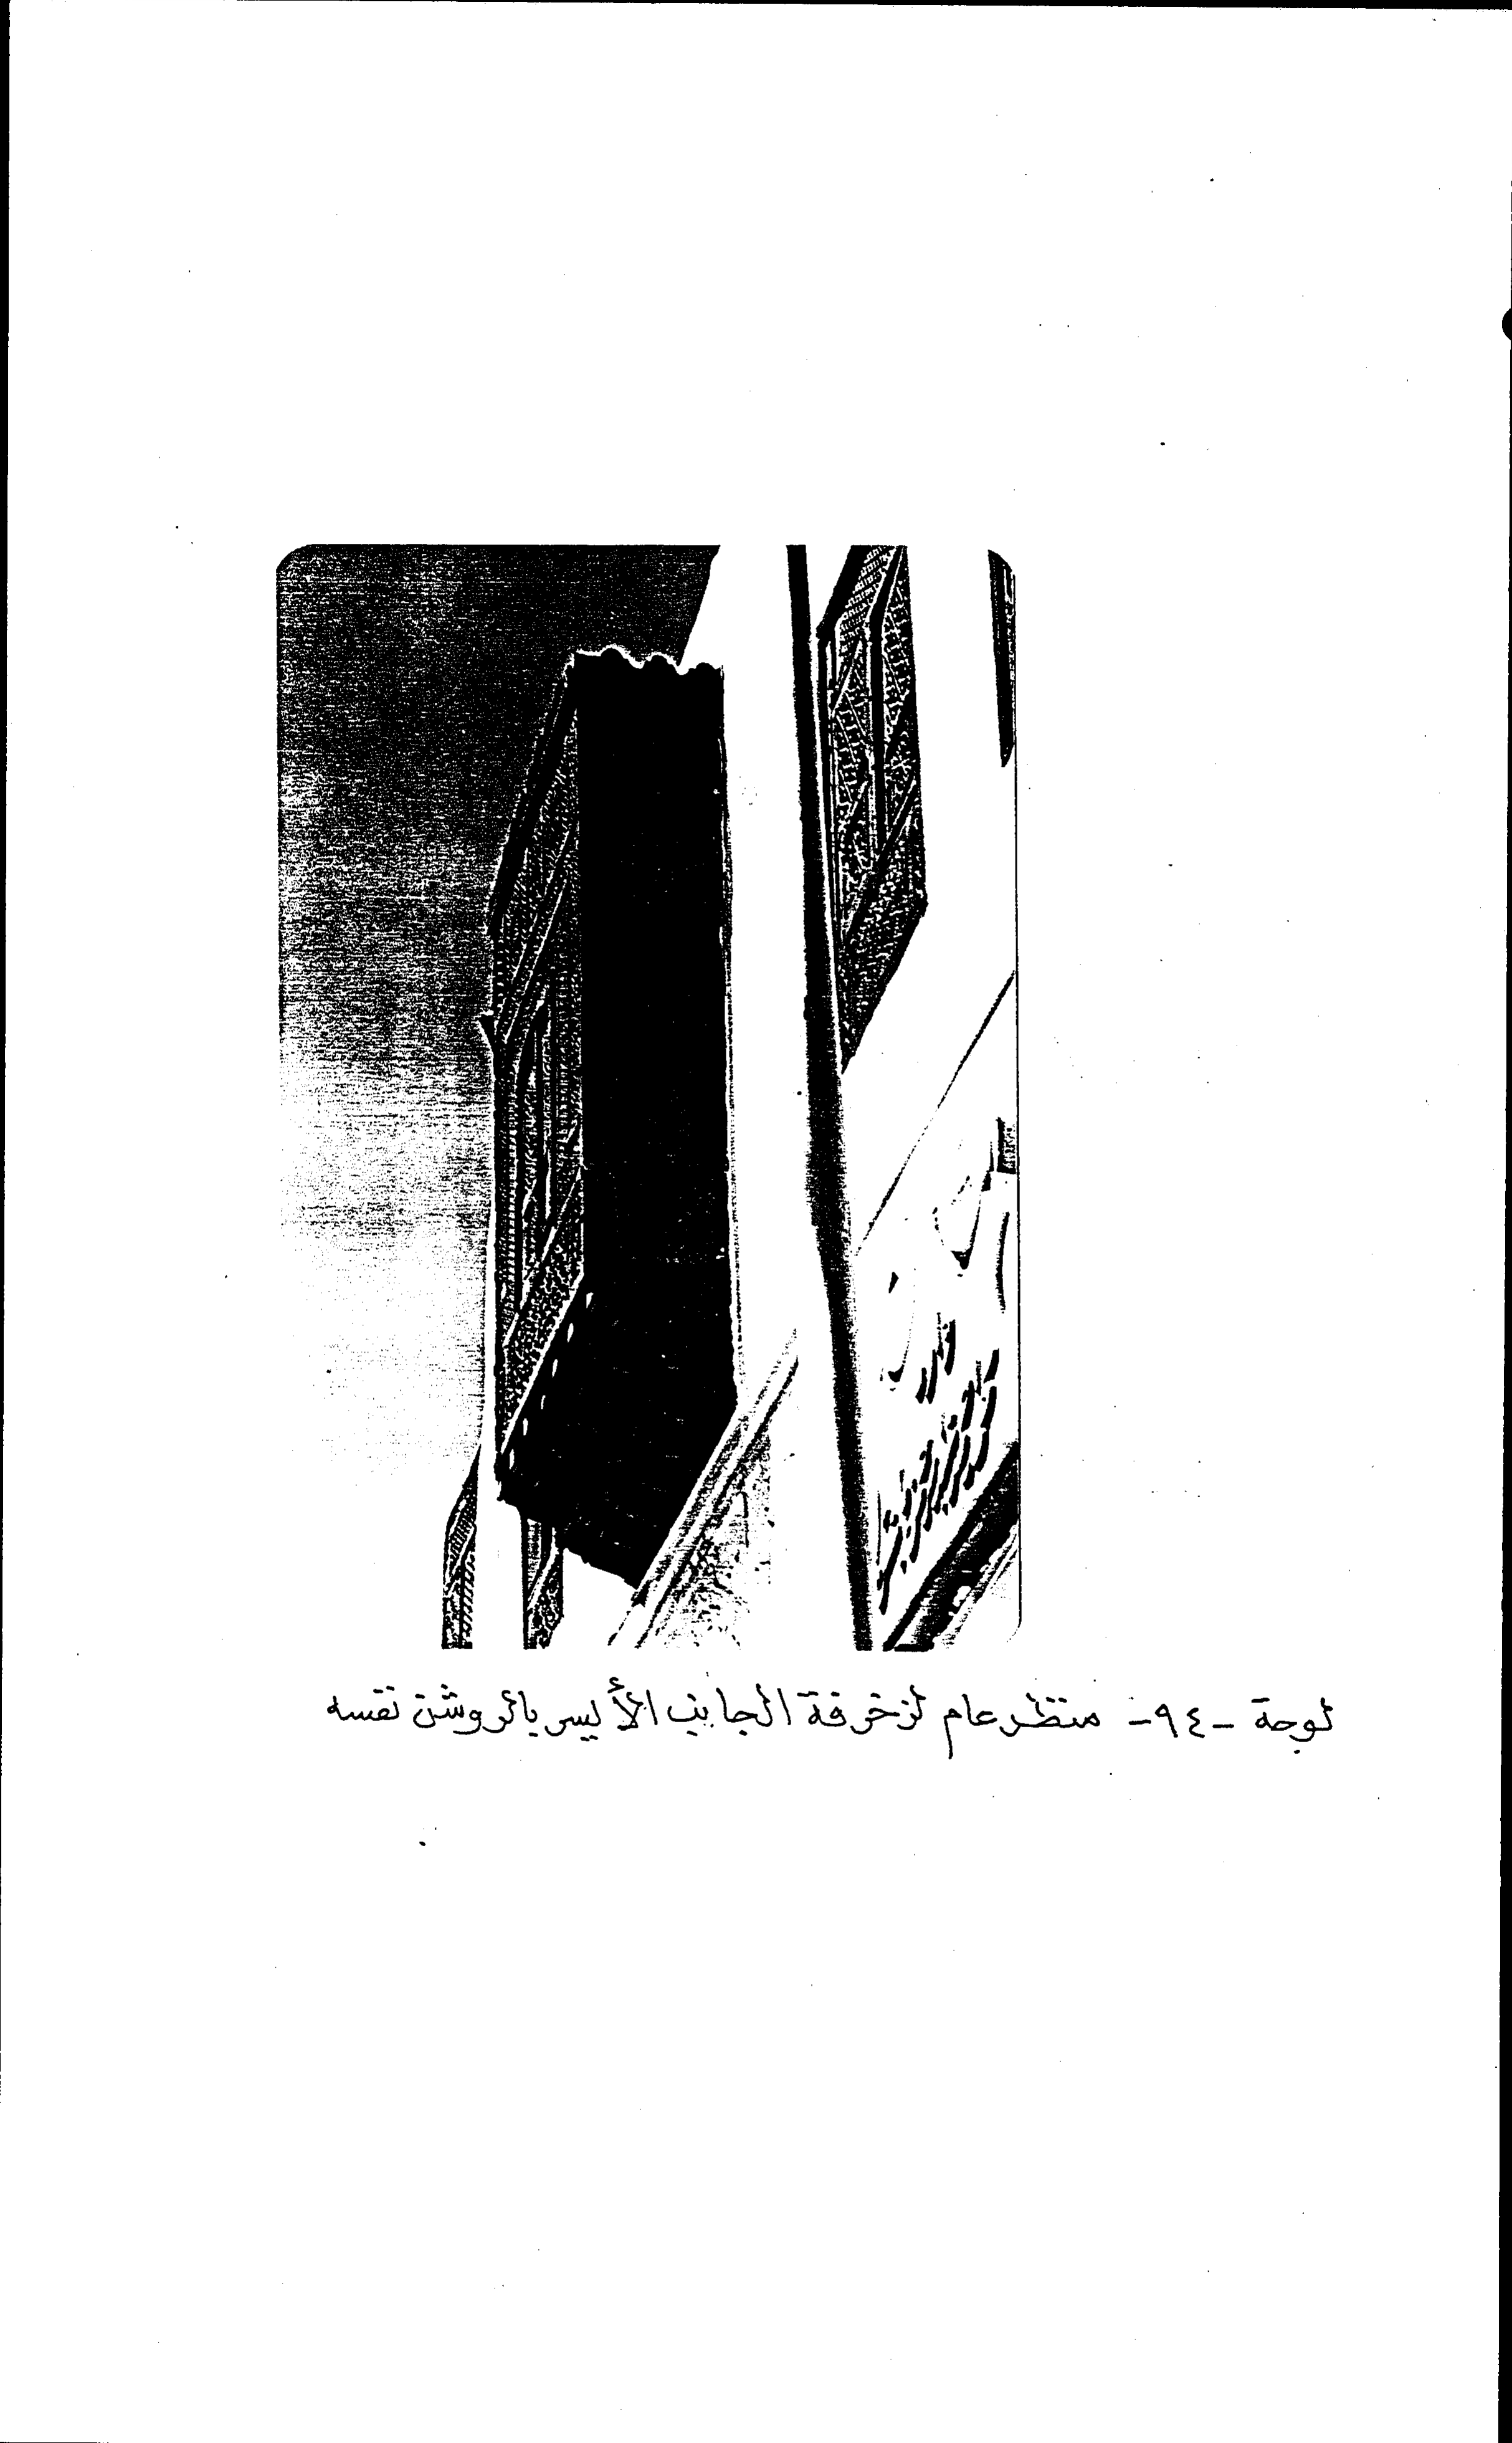 لوحة -٩٤- منظر عام لزخرفة الجانب الأيسر بالروشن نفسه